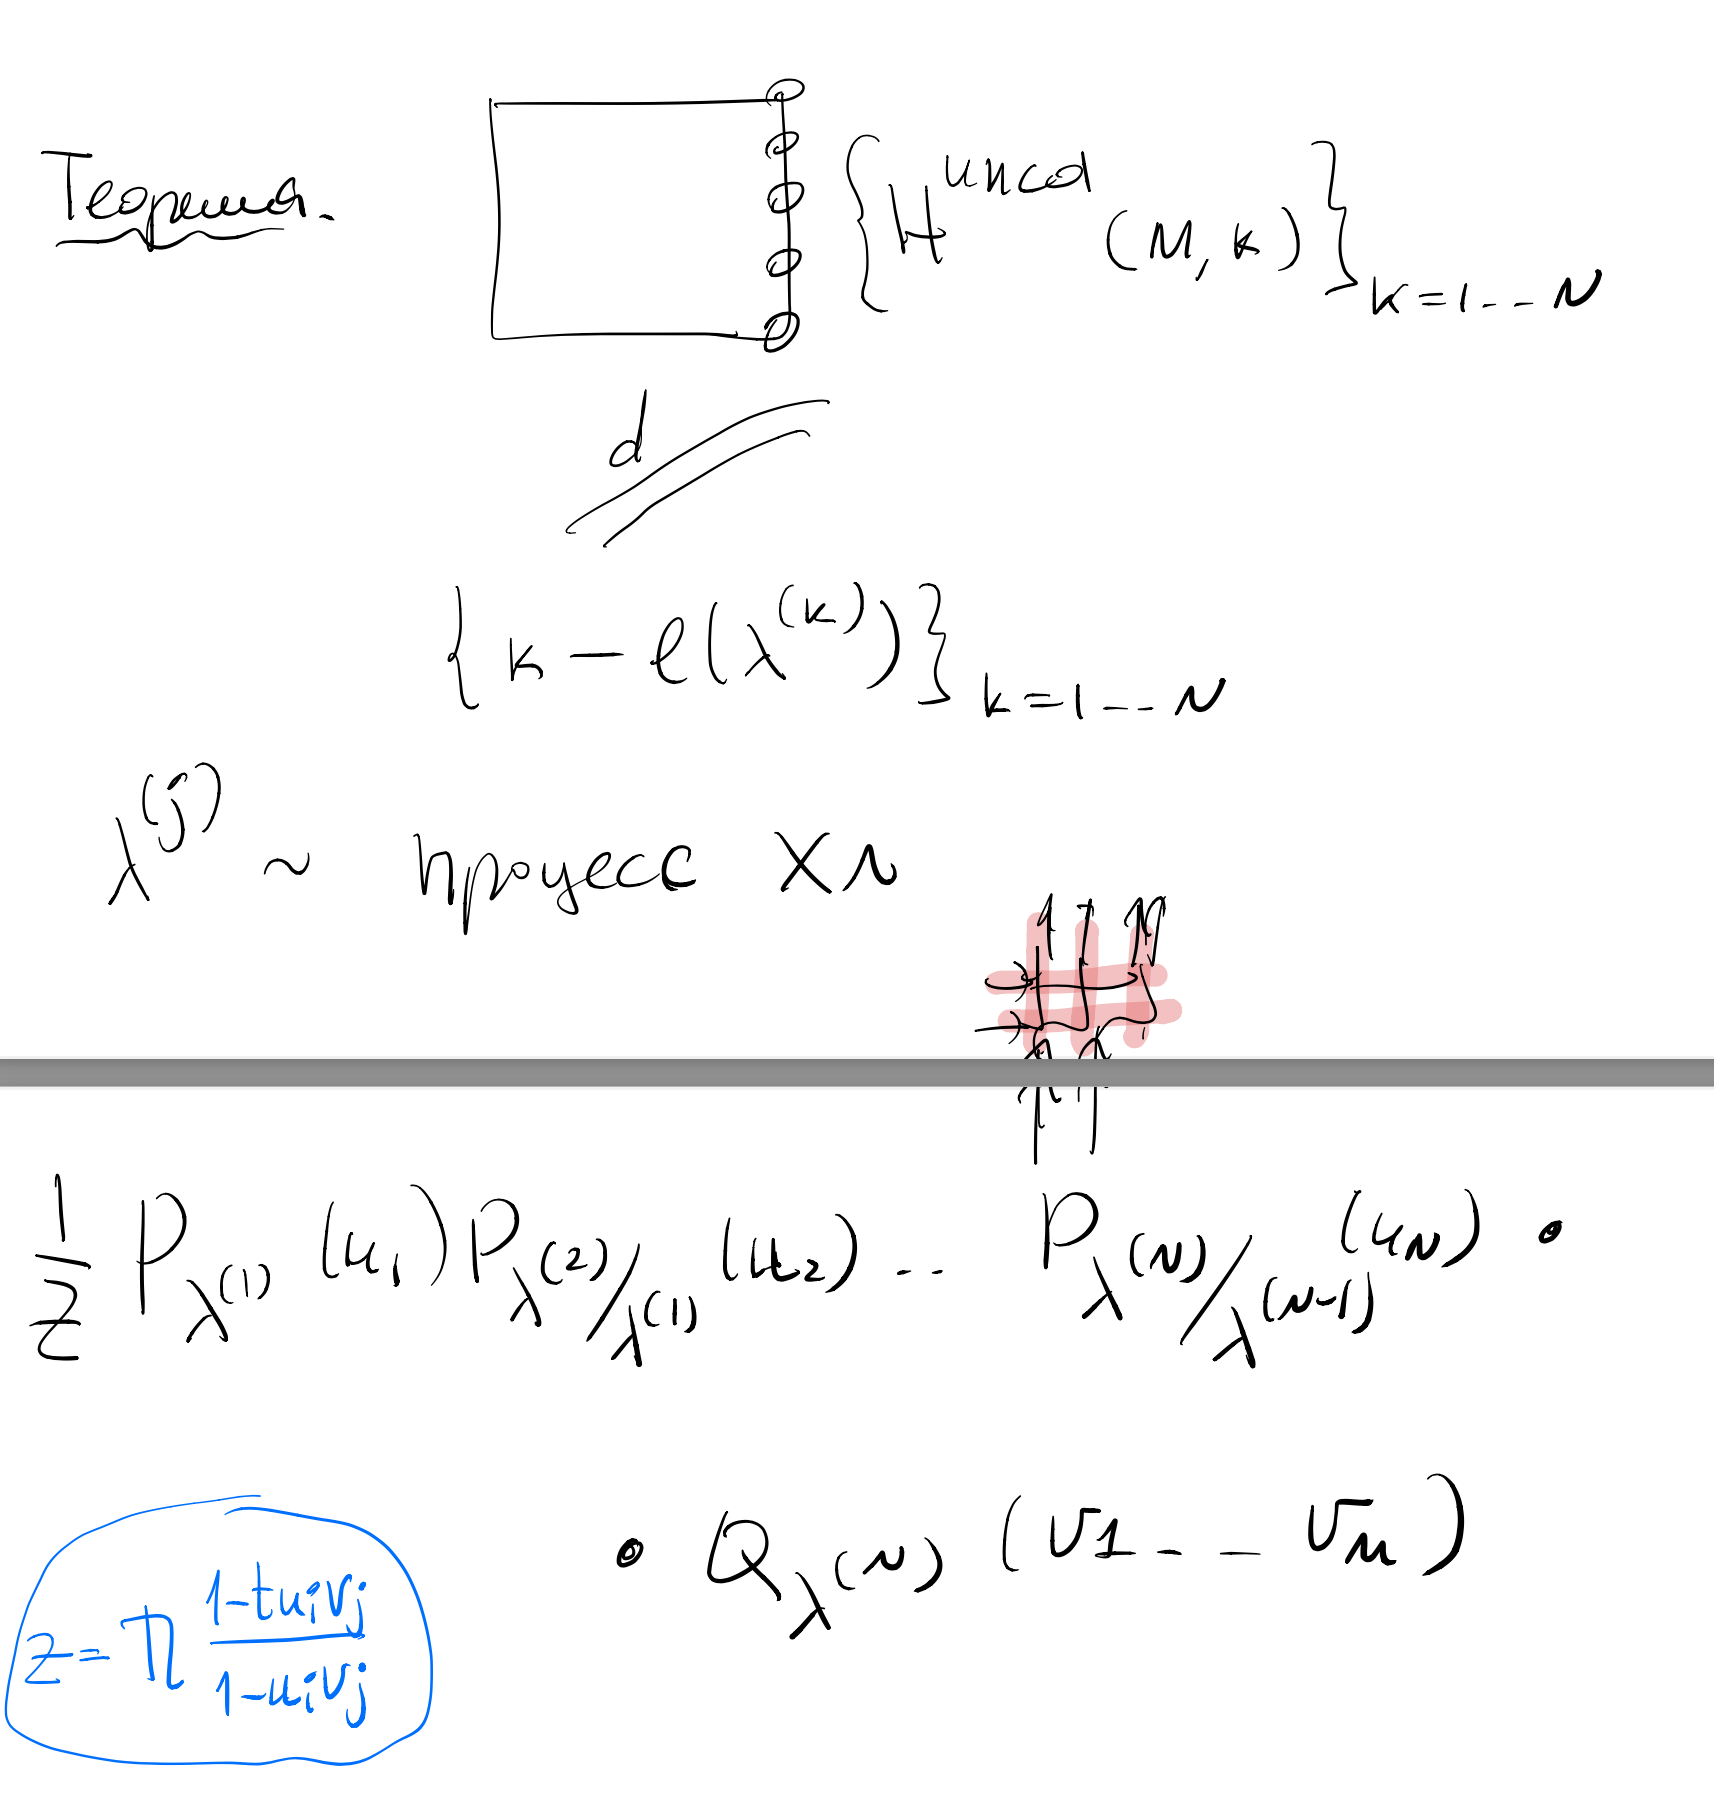 Теорема. {H^uncol (M, k)}_{k=1..N}
d
{k - ℓ(λ^{(k)})}_{k=1..N}
λ^{(j)} ~ процесс ХЛ
1/Z P_{λ^{(1)}} (u_1) P_{λ^{(2)}/λ^{(1)}} (u_2) .. P_{λ^{(N)}/λ^{(N-1)}} (u_N) •
• Q_{λ^{(N)}} (v_1 .. v_M)
Z = Π \frac{1-tu_iv_j}{1-u_iv_j}